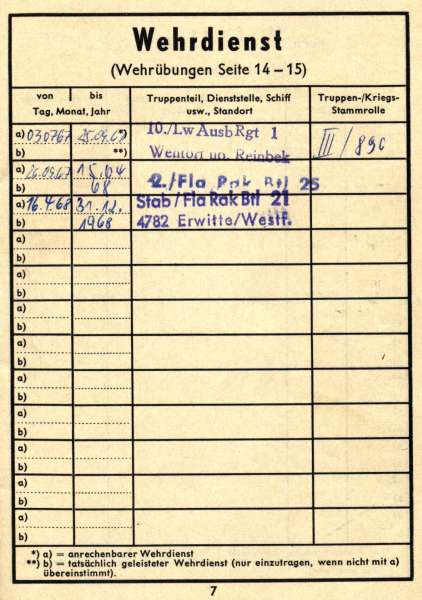 Wehrdienst
(Wehrübungen Seite 14 – 15)
von bis
Tag, Monat, Jahr
Truppenteil, Dienststelle, Schiff
usw., Standort
Truppen-/Kriegs-
Stammrolle
a) 030767 25.09.67 *) 10./LwAusbRgt 1 III/890
b) **) Wentorf üb. Reinbek
a) 26.09.67 15.04 2./Fla Rak Btl 25
b) 68
a) 16.4.68 31.12. Stab/FlaRakBtl 21
b) 1968 4782 Erwitte/Westf.
a)
b)
a)
b)
a)
b)
a)
b)
a)
b)
a)
b)
a)
b)
a)
b)
a)
b)
*) a) = anrechenbarer Wehrdienst
**) b) = tatsächlich geleisteter Wehrdienst (nur einzutragen, wenn nicht mit a)
übereinstimmt).
7